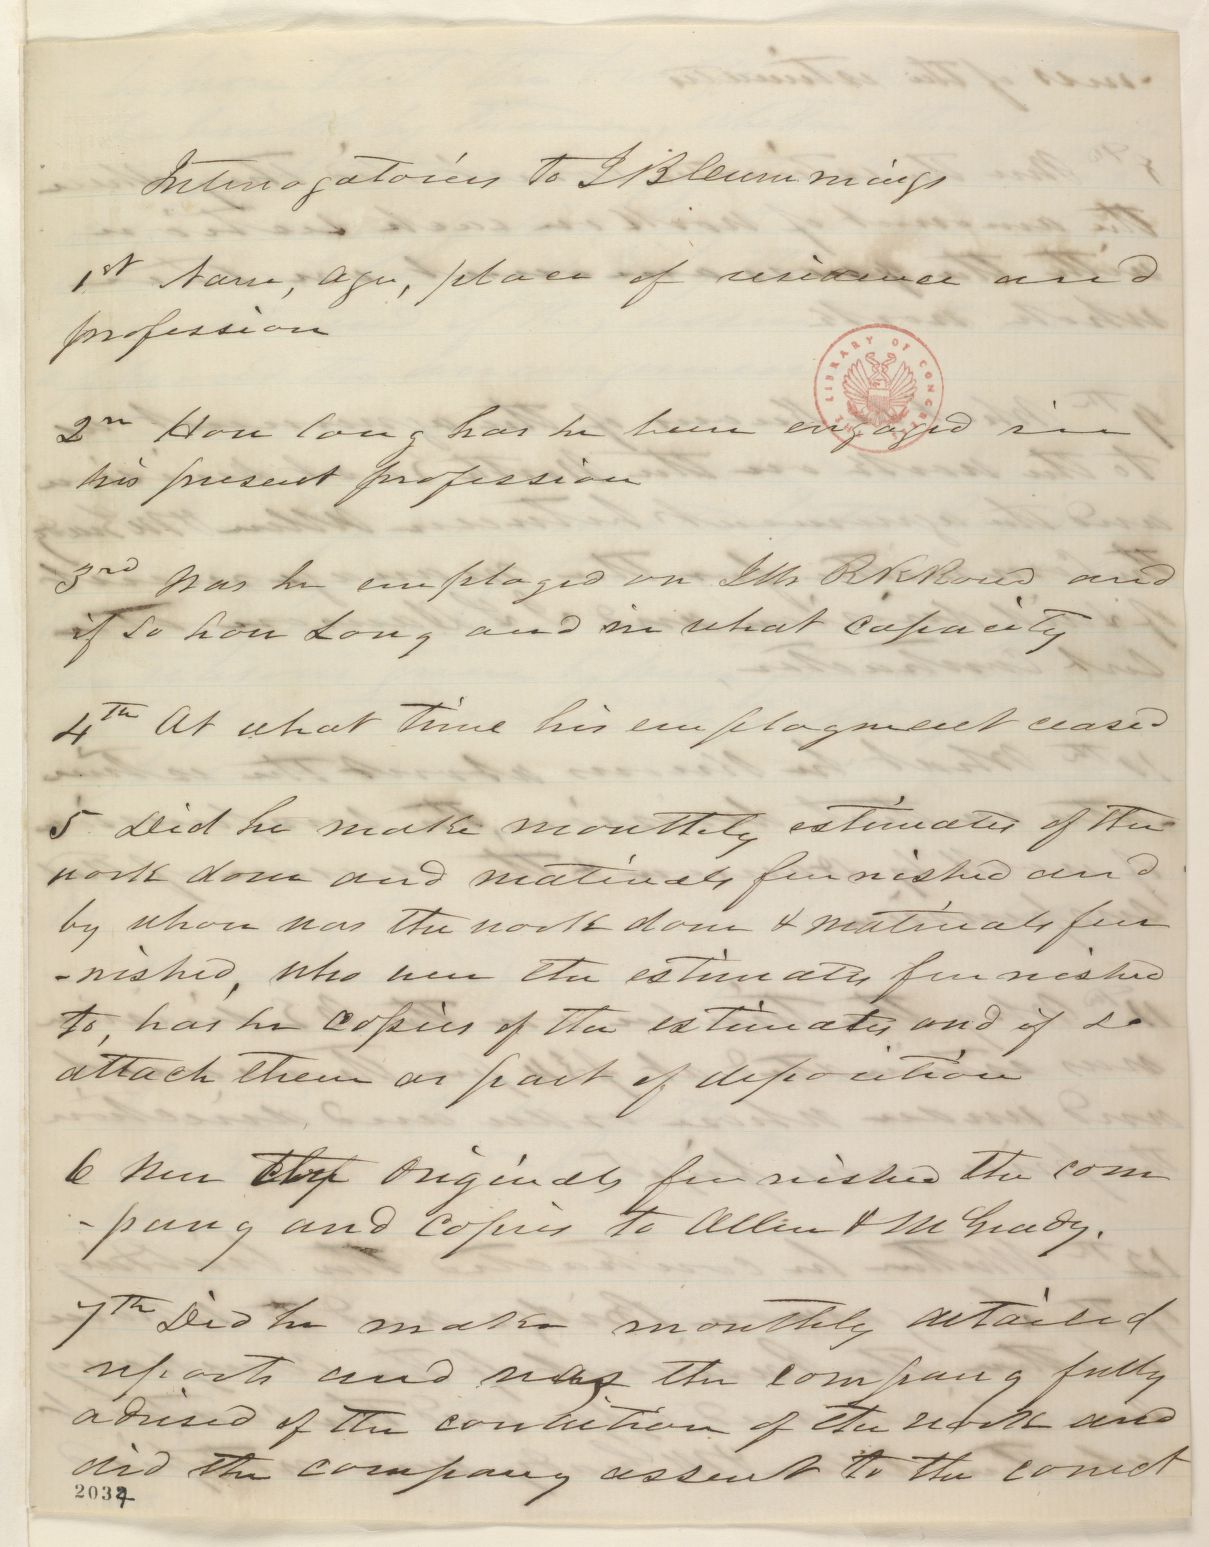 Interrogatories to J B Cummings
1st Name, age, place of residence and
profession
2n How long has he been engaged in
his present profession
3rd Was he employed on Ills R R Road and
if so how Long and in what capacity
4th At what time his employment ceased
5 Did he make monthly estimates of the
work done and materials furnished and
by whom was the work done & materials fur
-nished, who were the estimates furnished
to, has he copies of the estimates and if so
attach them as part of deposition
6 Were originals furnished the com
-pany and copies to Allen & McGrady.
7th Did he make monthly detailed
reports and was the company fully
advised of the condition of the work and
did the company assent to the correct
2034
LIBRARY OF CONGRESS